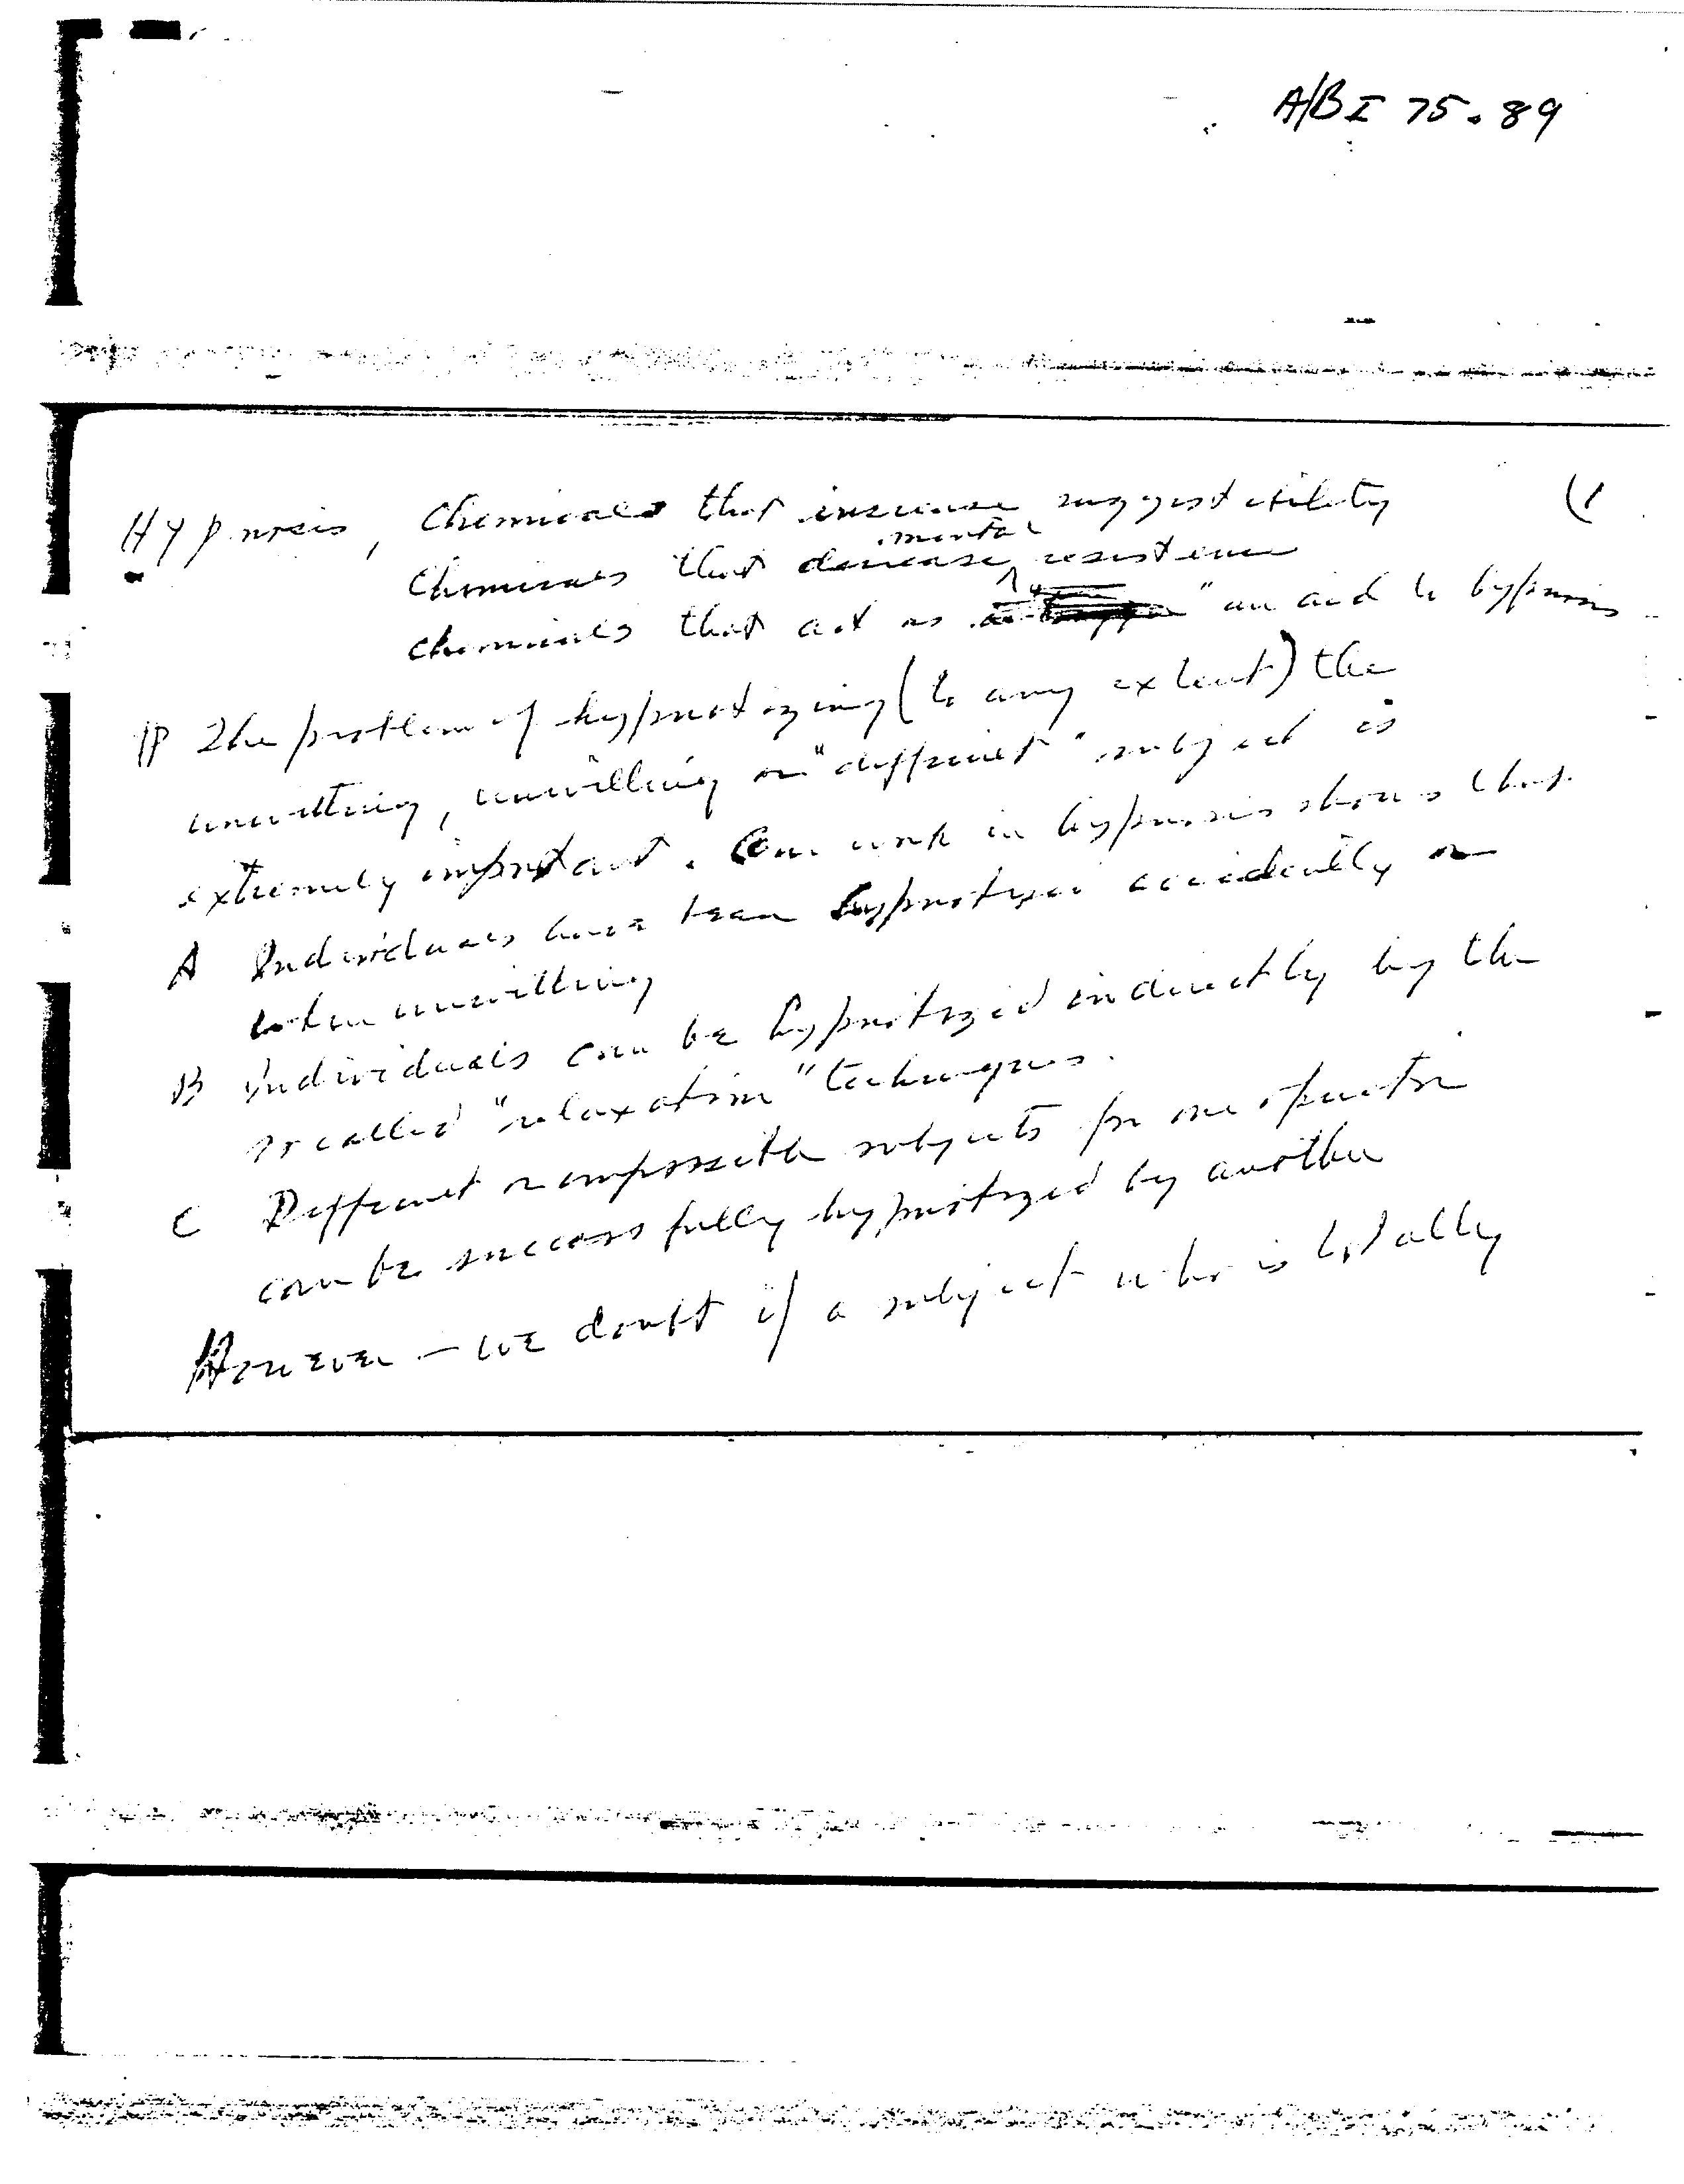 A/B I 75.89
Hypnosis, Chemicals that increase suggestibility (1
Chemicals that decrease mental resistence
Chemicals that act as "an aid to hypnosis
¶ The problem of hypnotizing (to any extent) the
unwitting, unwilling or "difficult" subject is
extremely important. Our work in hypnosis shows that
A Individuals have been hypnotized accidently or
when unwitting
B Individuals can be hypnotized indirectly by the
so called "relaxation" techniques.
C Difficult or impossible subjects for one operator
can be successfully hypnotized by another
However — we doubt if a subject who is totally